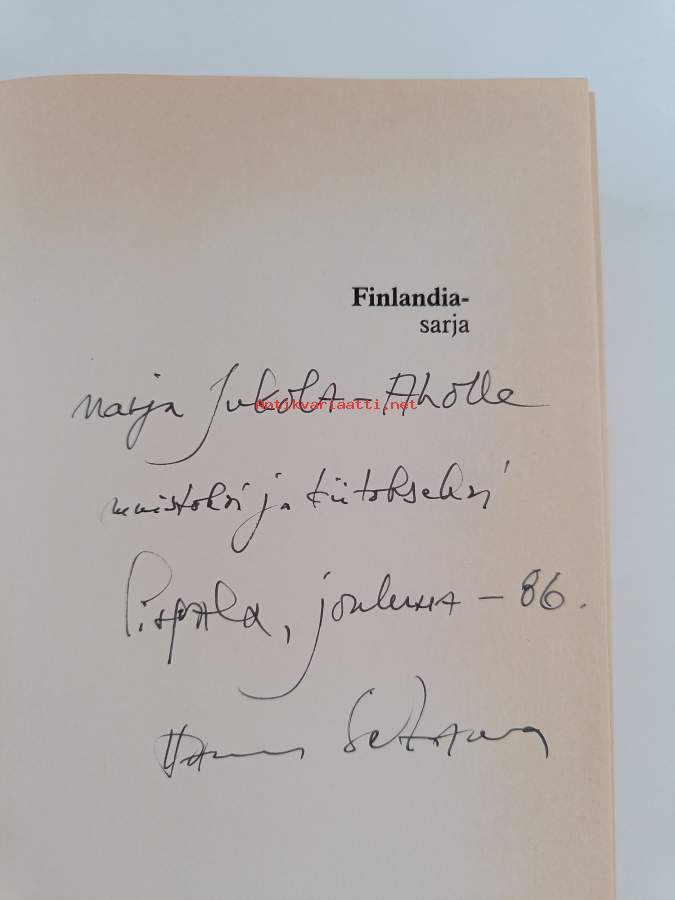 Finlandia-
sarja
Marja Jukola-Aholle
Antikvariaatti.net
muistoksi ja kiitokseksi
Pispala, jouluna -86.
Hannu Salama